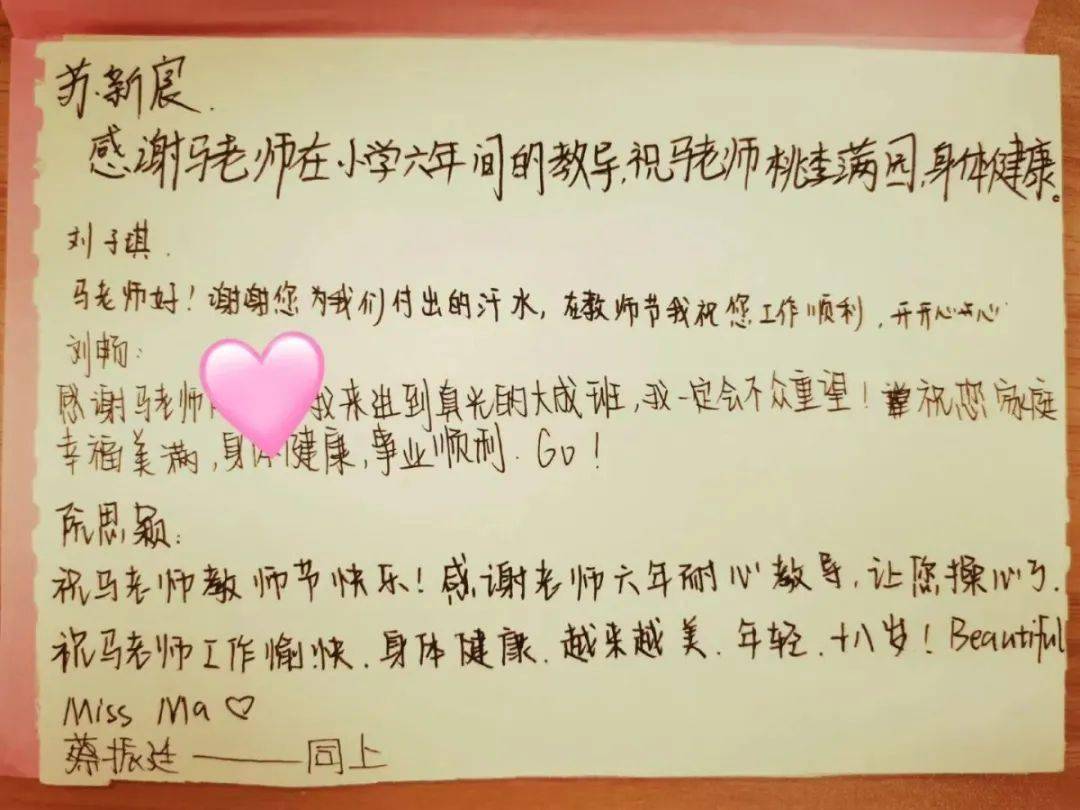 苏新宸.
感谢马老师在小学六年间的教导,祝马老师桃李满园,身体健康。
刘子琪.
马老师好!谢谢您为我们付出的汗水,在教师节我祝您工作顺利,开开心心
刘畅:
感谢马老师 我来进到真光的大成班,我一定会不众重望!祝您家庭
幸福美满,身体健康,事业顺利.Go!
阮思颖:
祝马老师教师节快乐!感谢老师六年耐心教导,让您操心了.
祝马老师工作愉快.身体健康.越来越美.年轻.十八岁!Beautiful
Miss Ma ♡
蔡振廷——同上